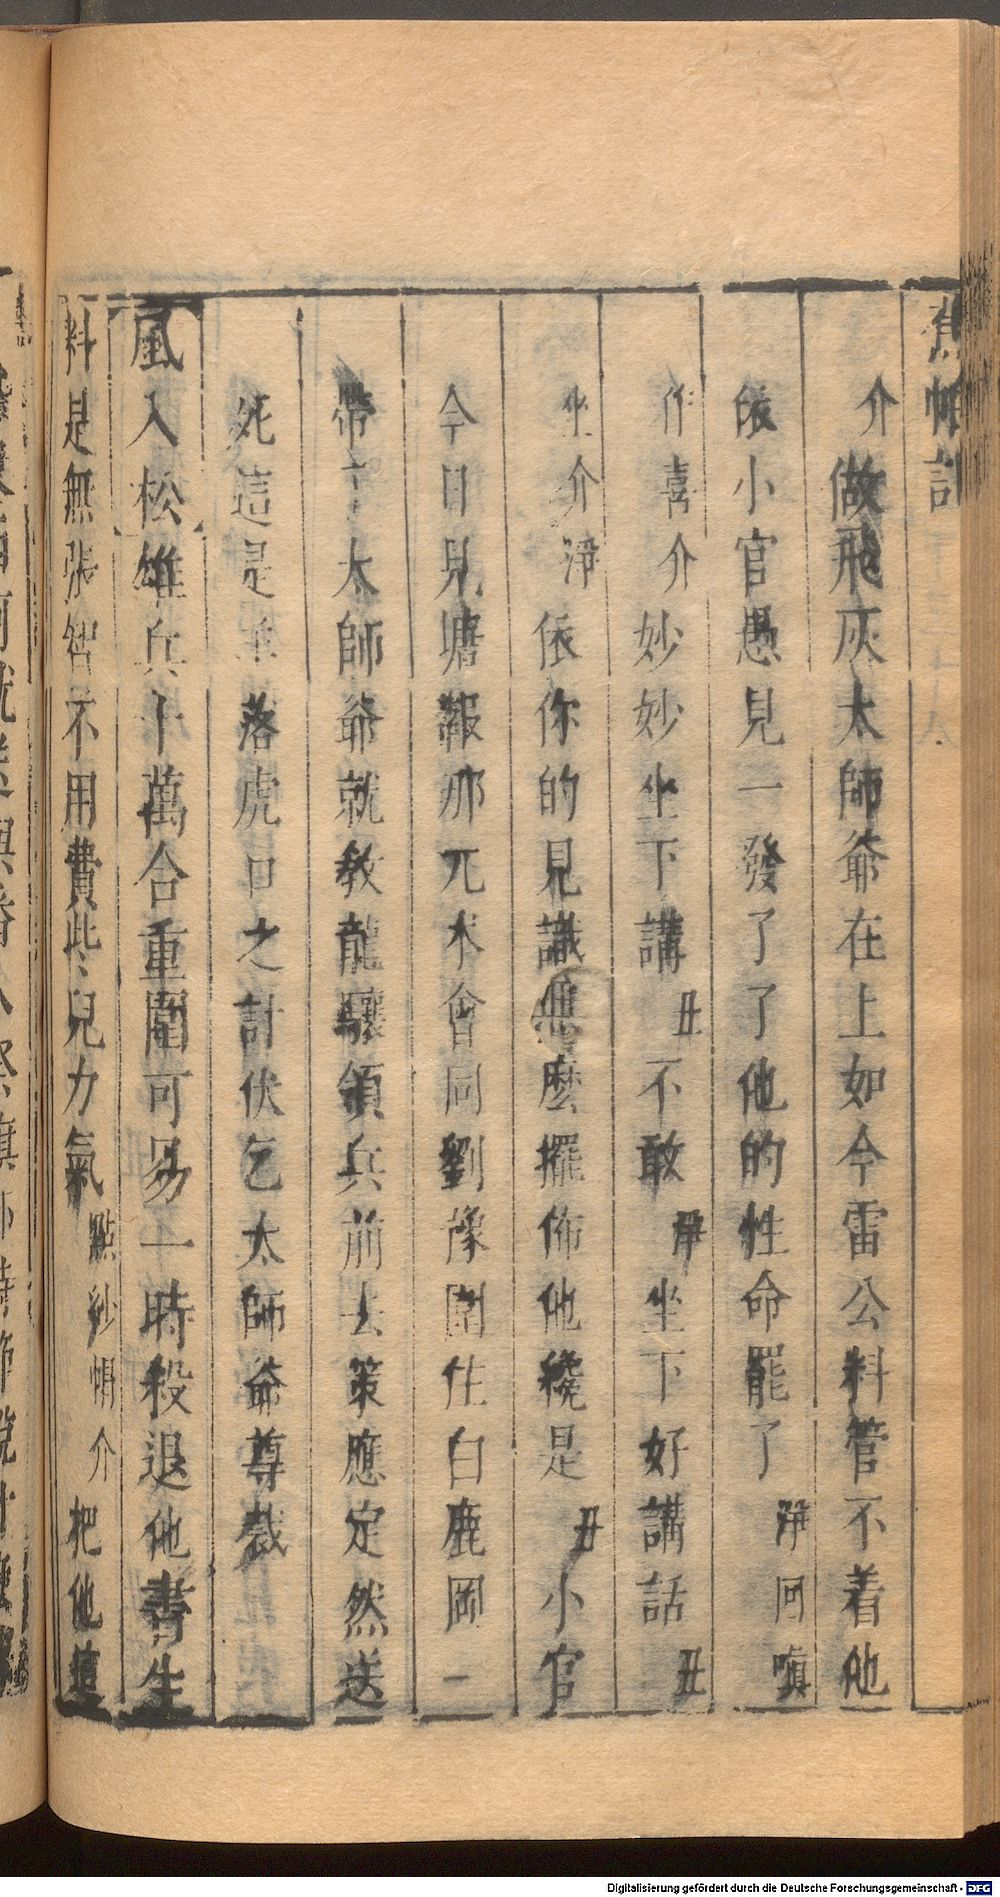 蕉帕記
介做飛灰太師爺在上如今雷公料管不着他
依小官愚見一發了了他的性命罷了淨回嗔
作喜介妙妙坐下講丑不敢淨坐下好講話丑
坐介淨依你的見識怎麼擺佈他纔是丑小官
今日見塘報那兀朮會同劉豫圍住白鹿岡二
帶太師爺就教龍驤領兵前去策應定然送
死這是落虎口之計伏乞太師爺尊裁
風入松雄兵十萬合重圍可易一時殺退他書生
料是無張智不用費些兒力氣點紗帽介把他
Digitalisierung gefördert durch die Deutsche Forschungsgemeinschaft - DFG